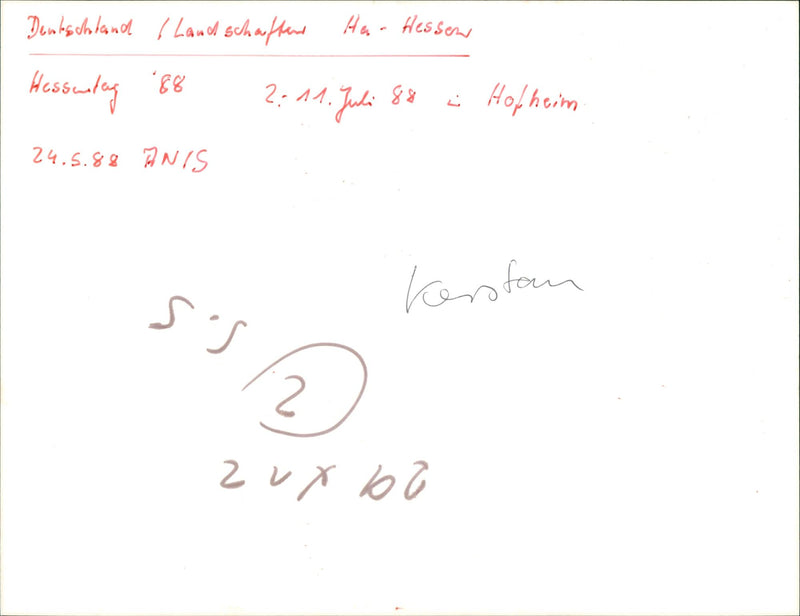 Deutschland / Landschaften Ha - Hessen
Hessentag '88 2.-11. Juli 88 in Hofheim
24.5.88 ANIS
Kerstan
S.S
2